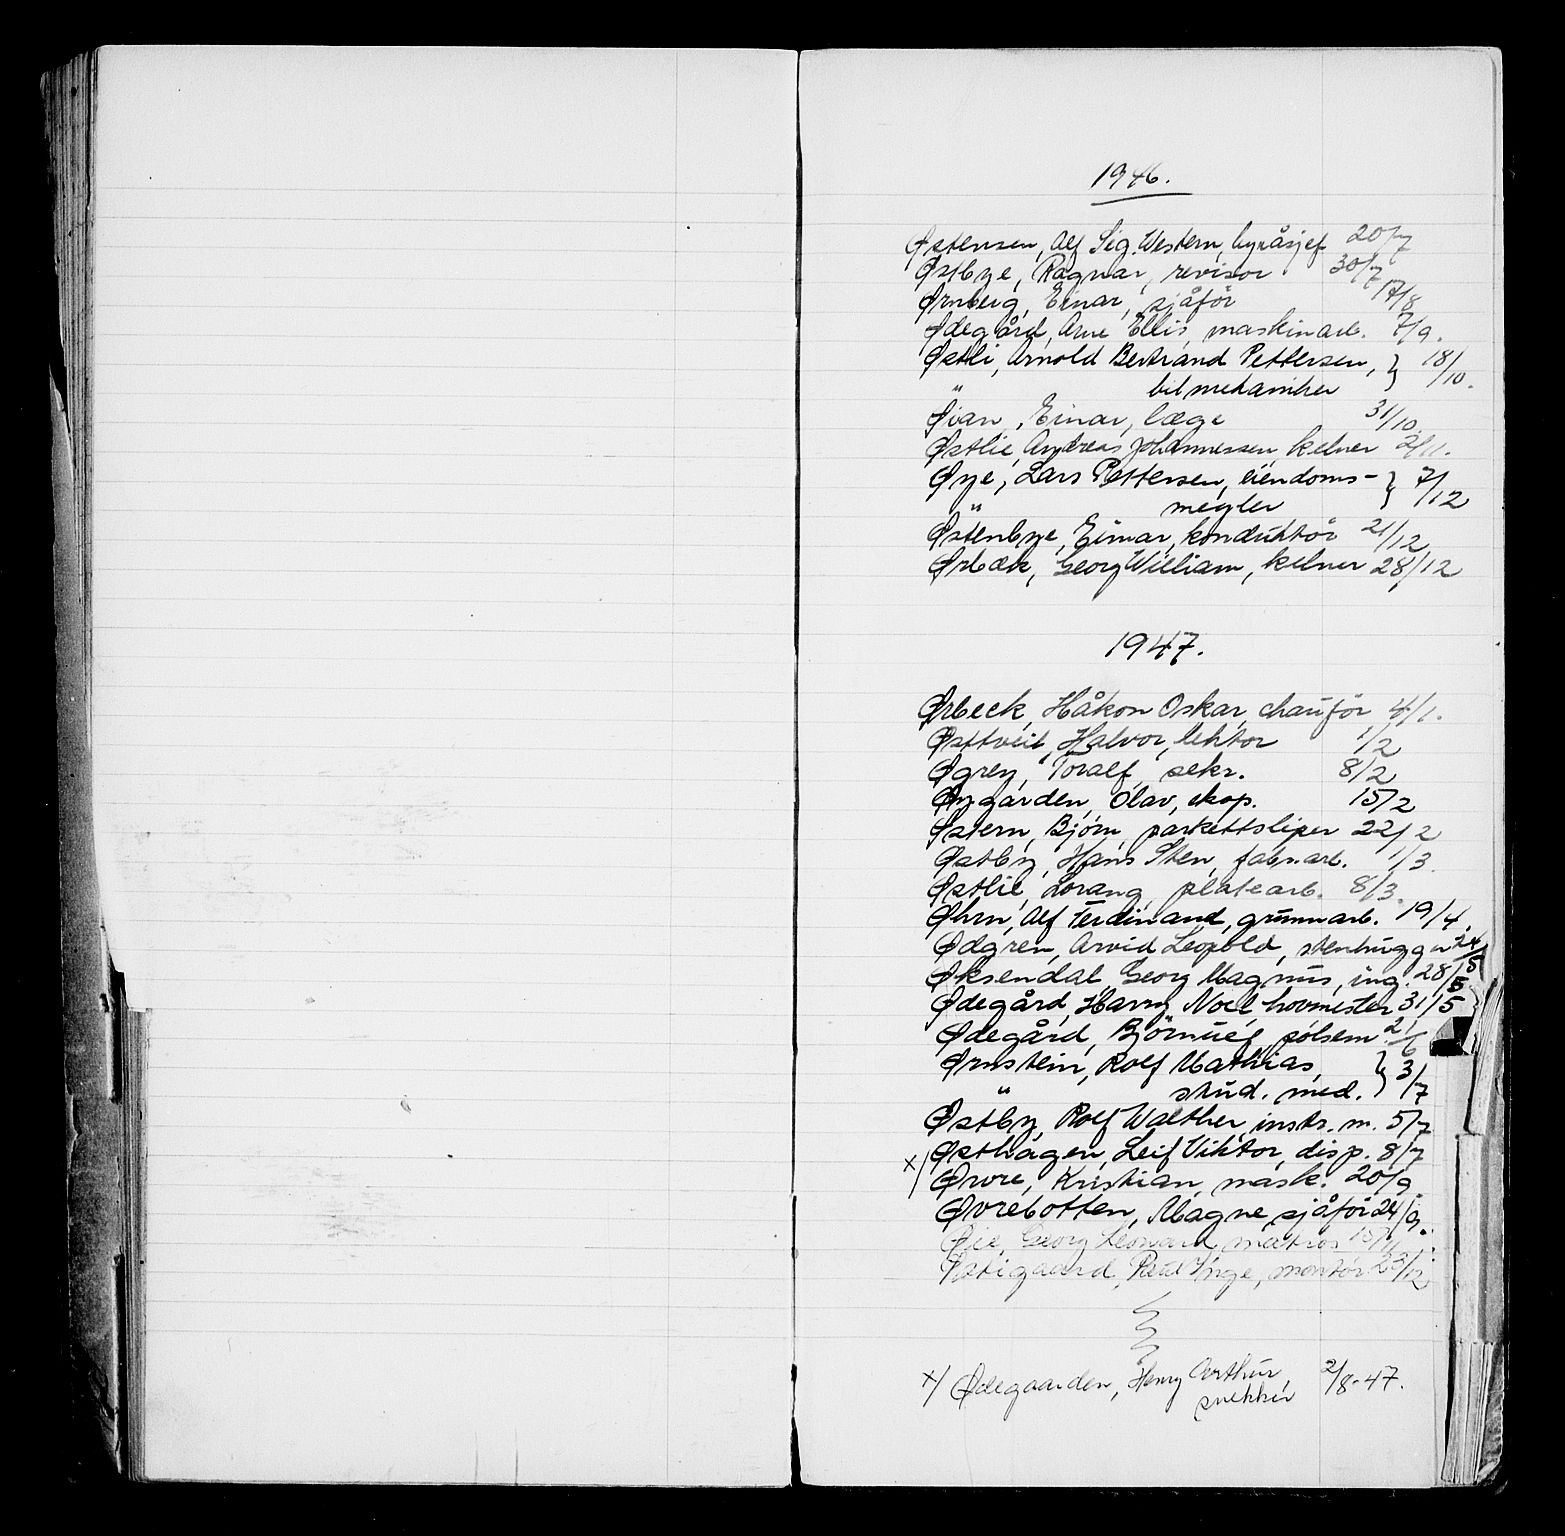 1946.
Østensen, Alf Sig. Western, byråsjef 20/7
Østbye, Ragnar, revisor 30/7
Ørnberg, Einar, sjåför 17/8
Ødegård, Arne Ellis, maskinarb. 7/9.
Østli, Arnold Bertrand Pettersen, } 18/10.
" bilmekaniker
Øian, Einar, læge 31/10.
Østlie, Andreas Johannessen, kelner 2/11.
Øye, Lars Pettersen, eiendoms- } 7/12
" megler
Østenbye, Einar, konduktör 21/12
Ørbæk, Georg William, kelner 28/12
1947.
Ørbeck, Håkon Oskar, chauför 4/1.
Østtveit, Halvor, lektor 1/2
Øgrey, Toralf, sekr. 8/2
Øygarden, Olav, eksp. 15/2
Østern, Björn, parkettsliper 22/2
Østby, Hans Sten, fabr.arb. 1/3.
Østlie, Lorang, platearb. 8/3.
Øhrn, Alf Ferdinand, grunnarb. 19/4.
Ødgren, Arvid Leopold, stenhugger 24/5
Øksendal, Georg Magnus, ing. 28/5
Ødegård, Harry Noel, hovmester 31/5
Ødegård, Björnulf, pölsem. 21/6
Ørnstein, Rolf Mathias, } 3/7
" stud. med.
Østby, Rolf Walther, instr.m. 5/7
x) Østhagen, Leif Viktor, disp. 8/7
Ørvre, Kristian, mask. 20/9.
Øvrebotten, Magne, sjåför 24/9.
Øie, Georg Leonard, matros 15/11.
Østigaard, Paul Inge, montör 23/12
x) Ødegaarden, Henry Arthur, 2/8-47.
snekker